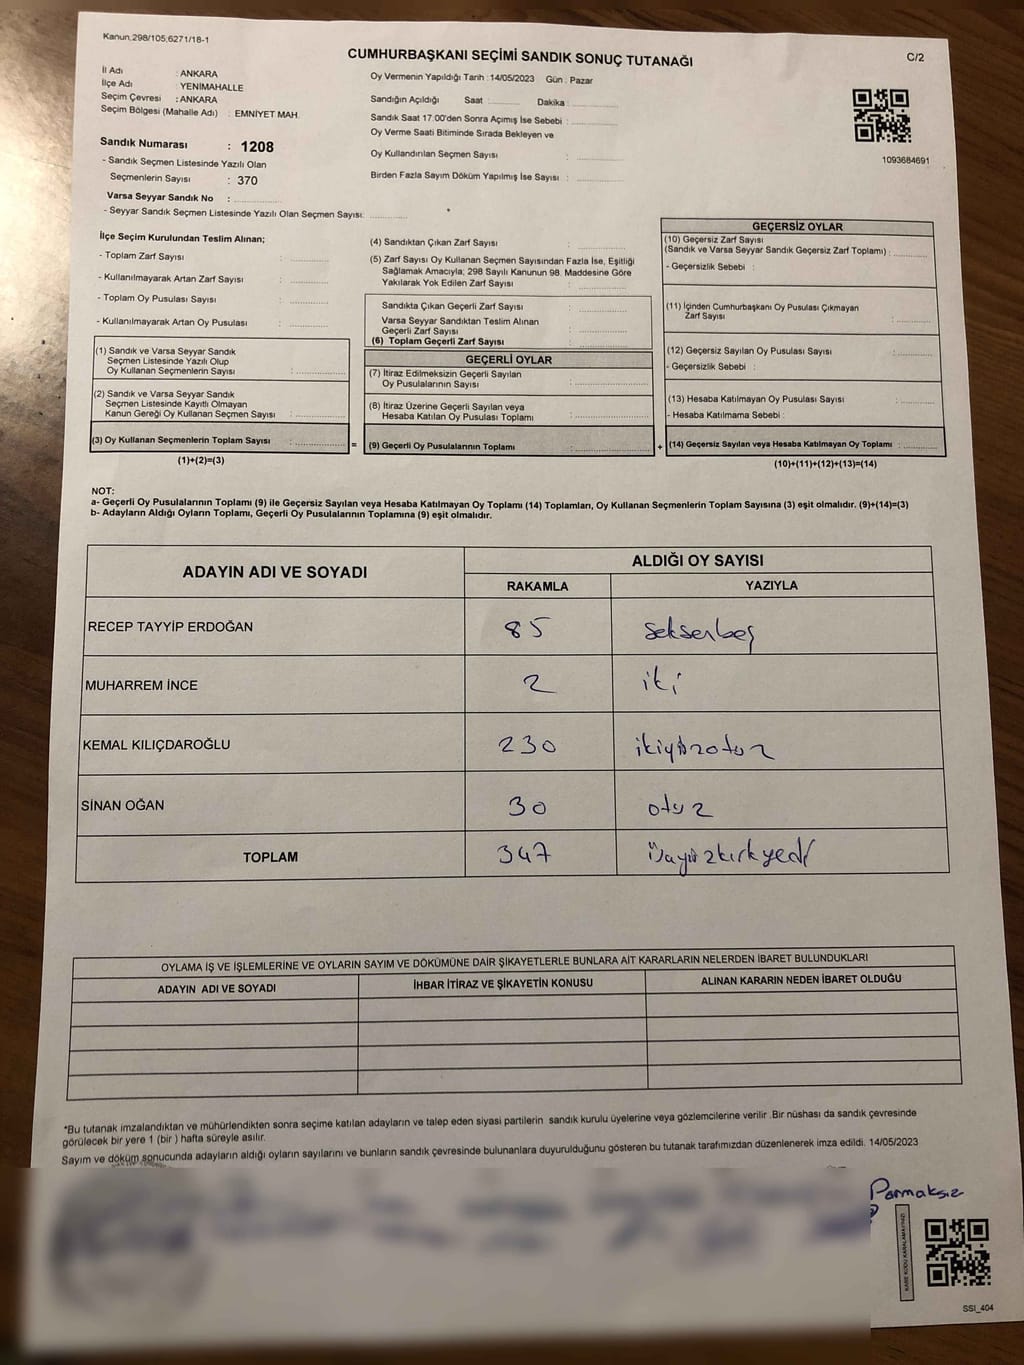 Kanun.298/105,6271/18-1
C/2
CUMHURBAŞKANI SEÇİMİ SANDIK SONUÇ TUTANAĞI
İl Adı : ANKARA
İlçe Adı : YENIMAHALLE
Seçim Çevresi : ANKARA
Seçim Bölgesi (Mahalle Adı) : EMNİYET MAH.
Oy Vermenin Yapıldığı Tarih :14/05/2023 Gün : Pazar
Sandığın Açıldığı Saat ............ Dakika : ............
Sandık Saat 17:00'den Sonra Açımış İse Sebebi : ............
Oy Verme Saati Bitiminde Sırada Bekleyen ve
Oy Kullandırılan Seçmen Sayısı : ............
Birden Fazla Sayım Döküm Yapılmış İse Sayısı : ............
1093684691
Sandık Numarası : 1208
- Sandık Seçmen Listesinde Yazılı Olan
Seçmenlerin Sayısı : 370
Varsa Seyyar Sandık No : ............
- Seyyar Sandık Seçmen Listesinde Yazılı Olan Seçmen Sayısı: ............
İlçe Seçim Kurulundan Teslim Alınan;
- Toplam Zarf Sayısı : ............
- Kullanılmayarak Artan Zarf Sayısı : ............
- Toplam Oy Pusulası Sayısı : ............
- Kullanılmayarak Artan Oy Pusulası : ............
(1) Sandık ve Varsa Seyyar Sandık
Seçmen Listesinde Yazılı Olup
Oy Kullanan Seçmenlerin Sayısı : ............
(2) Sandık ve Varsa Seyyar Sandık
Seçmen Listesinde Kayıtlı Olmayan
Kanun Gereği Oy Kullanan Seçmen Sayısı : ............
(3) Oy Kullanan Seçmenlerin Toplam Sayısı : ............ =
(1)+(2)=(3)
(4) Sandıktan Çıkan Zarf Sayısı : ............
(5) Zarf Sayısı Oy Kullanan Seçmen Sayısından Fazla İse, Eşitliği
Sağlamak Amacıyla, 298 Sayılı Kanunun 98. Maddesine Göre
Yakılarak Yok Edilen Zarf Sayısı : ............
Sandıkta Çıkan Geçerli Zarf Sayısı : ............
Varsa Seyyar Sandıktan Teslim Alınan
Geçerli Zarf Sayısı : ............
(6) Toplam Geçerli Zarf Sayısı : ............
GEÇERLİ OYLAR
(7) İtiraz Edilmeksizin Geçerli Sayılan
Oy Pusulalarının Sayısı : ............
(8) İtiraz Üzerine Geçerli Sayılan veya
Hesaba Katılan Oy Pusulası Toplamı : ............
(9) Geçerli Oy Pusulalarının Toplamı : ............ +
GEÇERSİZ OYLAR
(10) Geçersiz Zarf Sayısı
(Sandık ve Varsa Seyyar Sandık Geçersiz Zarf Toplamı) : ............
- Geçersizlik Sebebi :
(11) İçinden Cumhurbaşkanı Oy Pusulası Çıkmayan
Zarf Sayısı : ............
(12) Geçersiz Sayılan Oy Pusulası Sayısı : ............
- Geçersizlik Sebebi :
(13) Hesaba Katılmayan Oy Pusulası Sayısı : ............
- Hesaba Katılmama Sebebi :
(14) Geçersiz Sayılan veya Hesaba Katılmayan Oy Toplamı : ............
(10)+(11)+(12)+(13)=(14)
NOT:
a- Geçerli Oy Pusulalarının Toplamı (9) ile Geçersiz Sayılan veya Hesaba Katılmayan Oy Toplamı (14) Toplamları, Oy Kullanan Seçmenlerin Toplam Sayısına (3) eşit olmalıdır. (9)+(14)=(3)
b- Adayların Aldığı Oyların Toplamı, Geçerli Oy Pusulalarının Toplamına (9) eşit olmalıdır.
ADAYIN ADI VE SOYADI ALDIĞI OY SAYISI
RAKAMLA YAZIYLA
RECEP TAYYİP ERDOĞAN 85 seksenbeş
MUHARREM İNCE 2 iki
KEMAL KILIÇDAROĞLU 230 ikiyüzotuz
SİNAN OĞAN 30 otuz
TOPLAM 347 üçyüzkırkyedi
OYLAMA İŞ VE İŞLEMLERİNE VE OYLARIN SAYIM VE DÖKÜMÜNE DAİR ŞİKAYETLERLE BUNLARA AİT KARARLARIN NELERDEN İBARET BULUNDUKLARI
ADAYIN ADI VE SOYADI İHBAR İTİRAZ VE ŞİKAYETİN KONUSU ALINAN KARARIN NEDEN İBARET OLDUĞU
*Bu tutanak imzalandıktan ve mühürlendikten sonra seçime katılan adayların ve talep eden siyasi partilerin sandık kurulu üyelerine veya gözlemcilerine verilir .Bir nüshası da sandık çevresinde
görülecek bir yere 1 (bir ) hafta süreyle asılır.
Sayım ve döküm sonucunda adayların aldığı oyların sayılarını ve bunların sandık çevresinde bulunanlara duyurulduğunu gösteren bu tutanak tarafımızdan düzenlenerek imza edildi. 14/05/2023
Parmaksız
KARE KODU KARALAMAYINIZ!
SSI_404